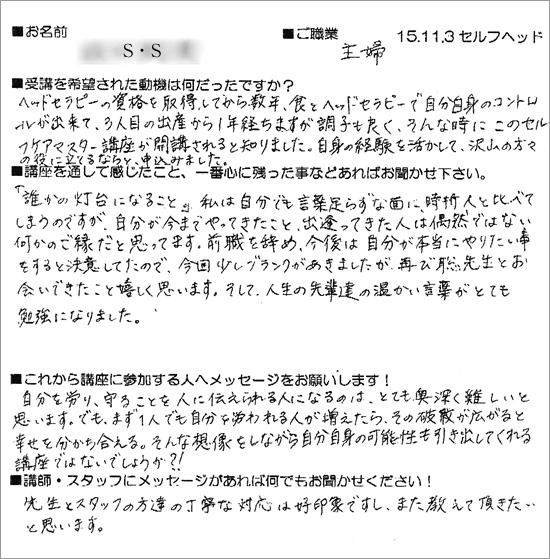 ■お名前
S・S
■ご職業
主婦
15.11.3 セルフヘッド
■受講を希望された動機は何だったですか？
ヘッドセラピーの資格を取得してから数年、食とヘッドセラピーで自分自身のコントロ
ールが出来て、3人目の出産から1年経ちますが調子も良く、そんな時にこのセル
フケアマスター講座が開講されると知りました。自身の経験を活かして、沢山の方々
の役に立てるならと、申込みました。
■講座を通して感じたこと、一番心に残った事などあればお聞かせ下さい。
「誰かの灯台になること」。私は自分でも言葉足らずな面に、時折人と比べて
しまうのですが、自分が今までやってきたこと、出逢ってきた人は偶然ではない
何かのご縁だと思ってます。前職を辞め、今後は自分が本当にやりたい事
をすると決意してたので、今回少しブランクがあきましたが、再び聡先生とお
会いできたこと嬉しく思います。そして、人生の先輩達の温かい言葉がとても
勉強になりました。
■これから講座に参加する人へメッセージをお願いします！
自分を労り、守ることを人に伝えられる人になるのは、とても奥深く難しいと
思います。でも、まず1人でも自分を労われる人が増えたら、その波散が広がると
幸せを分かち合える。そんな想像をしながら自分自身の可能性も引き出してくれる
講座ではないでしょうか?!
■講師・スタッフにメッセージがあれば何でもお聞かせください！
先生とスタッフの方達の丁寧な対応は好印象ですし、また教えて頂きたい
と思います。